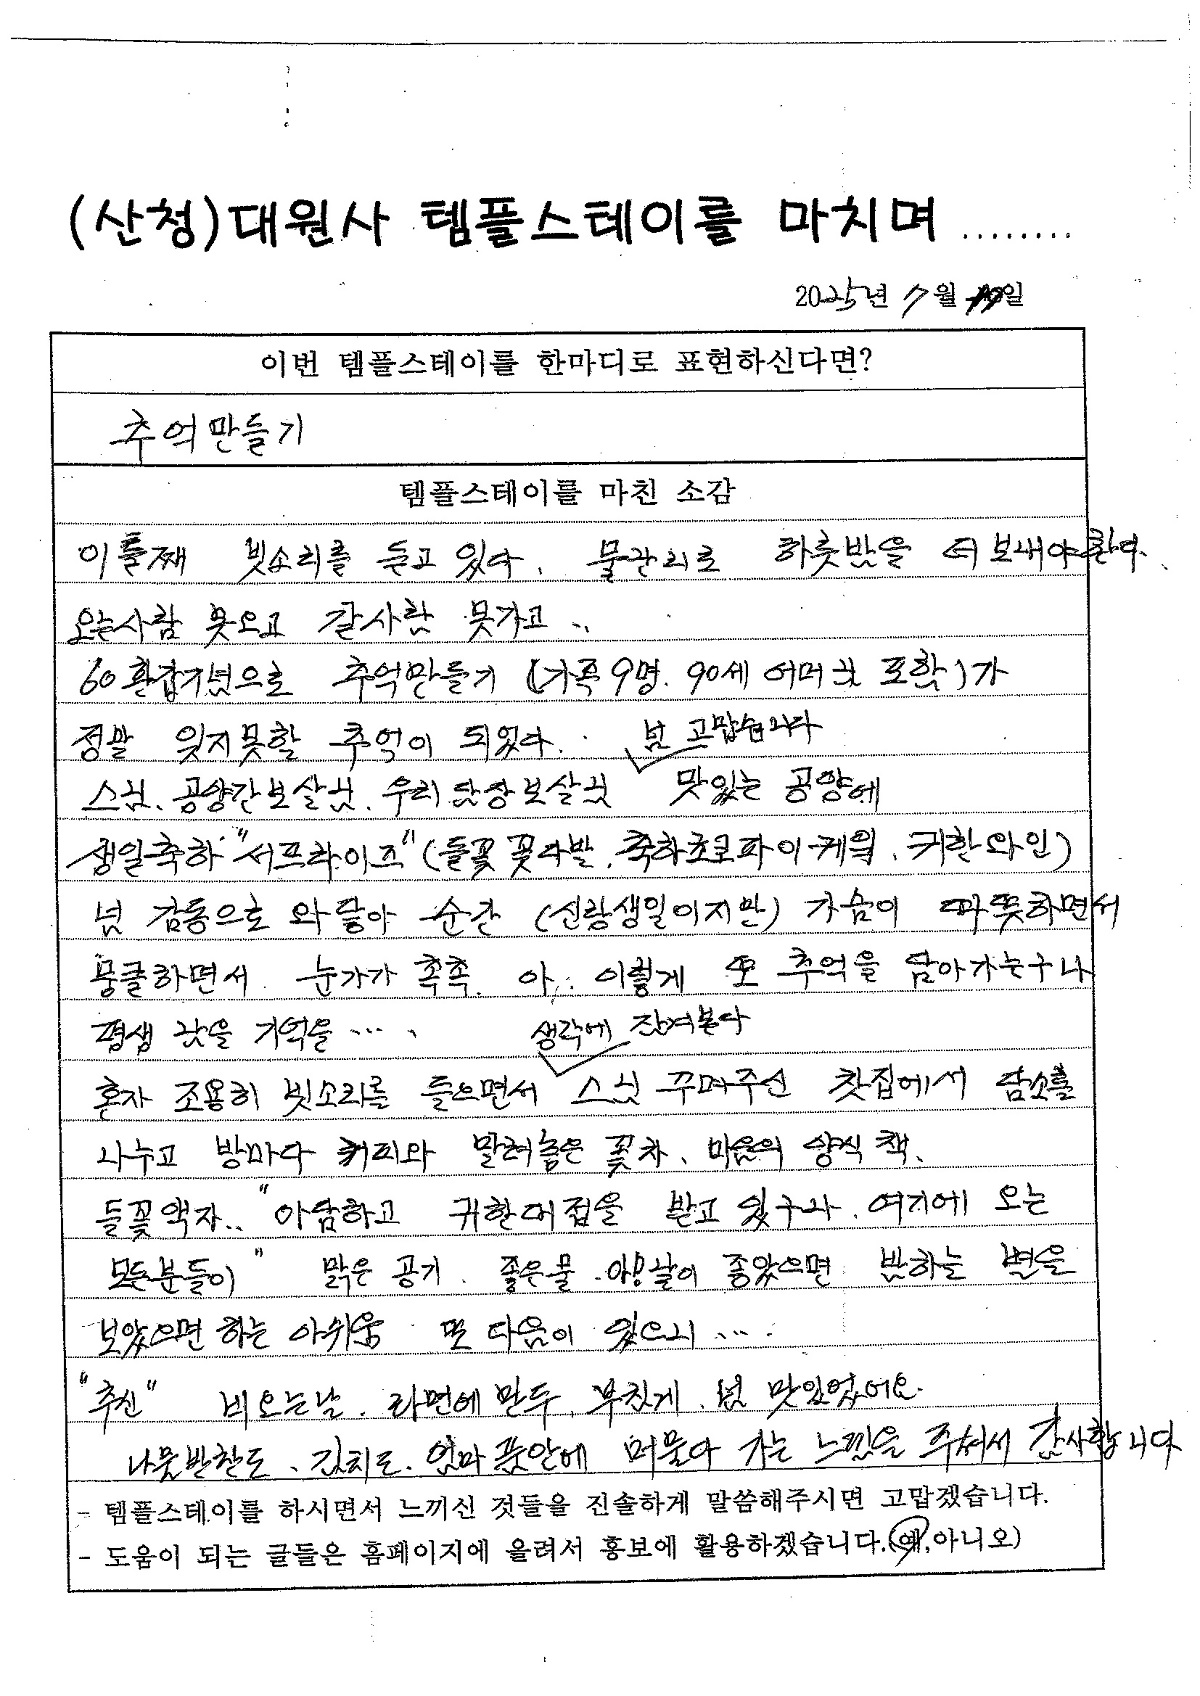 (산청)대원사 템플스테이를 마치며 ........
2025년 7월 일
이번 템플스테이를 한마디로 표현하신다면?
추억만들기
템플스테이를 마친 소감
이틀째 빗소리를 듣고 있다. 물관리로 하룻밤을 더 보내야한다.
오는사람 못오고 갈사람 못가고 ..
60환갑기념으로 추억만들기 (가족9명. 90세 어머님 포함)가
정말 잊지못할 추억이 되었다. 넘 고맙습니다
스님. 공양간보살님. 우리 보살님 맛있는 공양에
생일축하 "서프라이즈" (들꽃 꽃다발. 축하초코파이케익. 귀한와인)
넘 감동으로 와닿아 순간 (신랑생일이지만) 가슴이 따뜻하면서
뭉클하면서 눈가가 촉촉. 아.. 이렇게 또 추억을 담아가는구나
평생 남을 기억을 .... 생각에 잠겨본다
혼자 조용히 빗소리를 들으면서 스님 꾸며주신 찻집에서 담소를
나누고 방마다 커피와 말려놓은 꽃차. 마음의 양식 책.
들꽃액자.. "아담하고 귀한대접을 받고 있구나. 여기에 오는
모든분들이" 맑은 공기. 좋은물. 이 좋았으면 밤하는 별을
보았으면 하는 아쉬움 또 다음이 있으니 ....
"추신" 비오는날. 라면에 만두. 부침개. 넘 맛있었어요.
나물반찬도. 김치도. 엄마 품안에 머물다 가는 느낌을 주셔서 감사합니다
- 템플스테이를 하시면서 느끼신 것들을 진솔하게 말씀해주시면 고맙겠습니다.
- 도움이 되는 글들은 홈페이지에 올려서 홍보에 활용하겠습니다.(예,아니오)